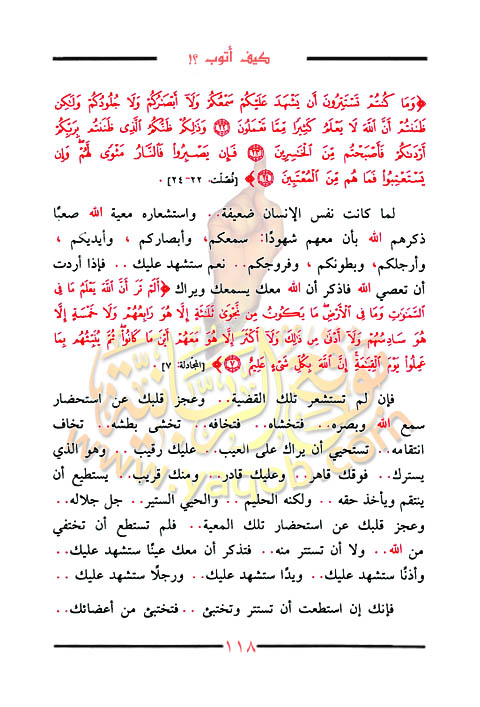 كيف أتوب ؟!
﴿وَمَا كُنتُمْ تَسْتَتِرُونَ أَن يَشْهَدَ عَلَيْكُمْ سَمْعُكُمْ وَلَا أَبْصَارُكُمْ وَلَا جُلُودُكُمْ وَلَكِن
ظَنَنتُمْ أَنَّ اللَّهَ لَا يَعْلَمُ كَثِيرًا مِّمَّا تَعْمَلُونَ ﴿٢٢﴾ وَذَلِكُمْ ظَنُّكُمُ الَّذِي ظَنَنتُم بِرَبِّكُمْ
أَرْدَاكُمْ فَأَصْبَحْتُم مِّنَ الْخَاسِرِينَ ﴿٢٣﴾ فَإِن يَصْبِرُوا فَالنَّارُ مَثْوًى لَّهُمْ وَإِن
يَسْتَعْتِبُوا فَمَا هُم مِّنَ الْمُعْتَبِينَ ﴿٢٤﴾﴾ [فُصّلَت: ٢٢-٢٤] .
لما كانت نفس الإنسان ضعيفة.. واستشعاره معية الله صعبًا
ذكرهم الله بأن معهم شهودًا: سمعكم، وأبصاركم ، وأيديكم ،
وأرجلكم، وبطونكم ، وفروجكم.. نعم ستشهد عليك .. فإذا أردت
أن تعصي الله فاذكر أن الله معك يسمعك ويراك ﴿أَلَمْ تَرَ أَنَّ اللَّهَ يَعْلَمُ مَا فِي
السَّمَاوَاتِ وَمَا فِي الْأَرْضِ مَا يَكُونُ مِن نَّجْوَى ثَلَاثَةٍ إِلَّا هُوَ رَابِعُهُمْ وَلَا خَمْسَةٍ إِلَّا
هُوَ سَادِسُهُمْ وَلَا أَدْنَى مِن ذَلِكَ وَلَا أَكْثَرَ إِلَّا هُوَ مَعَهُمْ أَيْنَ مَا كَانُوا ثُمَّ يُنَبِّئُهُم بِمَا
عَمِلُوا يَوْمَ الْقِيَامَةِ إِنَّ اللَّهَ بِكُلِّ شَيْءٍ عَلِيمٌ ﴿٧﴾﴾ [المجَادلة: ٧] .
فإن لم تستشعر تلك القضية.. وعجز قلبك عن استحضار
سمع الله وبصره.. فتخشاه.. فتخافه.. تخشى بطشه.. تخاف
انتقامه.. تستحيي أن يراك على العيب.. عليك رقيب .. وهو الذي
يسترك.. فوقك قاهر.. وعليك قادر.. ومنك قريب.. يستطيع أن
ينتقم ويأخذ حقه .. ولكنه الحليم .. والحيي الستير.. جل جلاله..
وعجز قلبك عن استحضار تلك المعية.. فلم تستطع أن تختفي
من الله.. ولا أن تستتر منه.. فتذكر أن معك عينًا ستشهد عليك..
وأذنًا ستشهد عليك .. ويدًا ستشهد عليك.. ورجلًا ستشهد عليك ..
فإنك إن استطعت أن تستتر وتختبئ .. فتختبئ من أعضائك..
١١٨